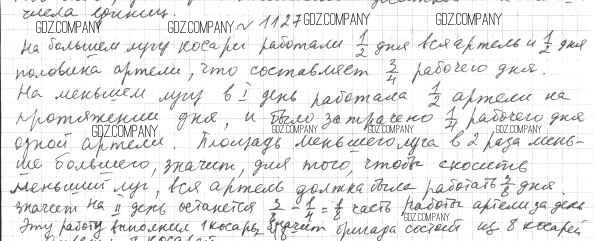 числа единиц.
GDZ.COMPANY GDZ.COMPANY № 1127 GDZ.COMPANY GDZ.COMPANY
На большем лугу косари работали 1/2 дня вся артель и 1/2 дня
половина артели, что составляет 3/4 рабочего дня.
На меньшем лугу в I день работала 1/2 артели на
протяжении дня, и было затрачено 1/4 рабочего дня
GDZ.COMPANY GDZ.COMPANY GDZ.COMPANY GDZ.COMPANY
одной артели. Площадь меньшего луга в 2 раза мень-
ше большего, значит, для того, чтобы скосить
меньший луг, вся артель должна была работать 3/8 дня.
значит на II день останется 3/8 - 1/4 = 1/8 часть работы артели за день
GDZ.COMPANY
Эту работу выполнил 1 косарь, значит бригада состоит из 8 косарей